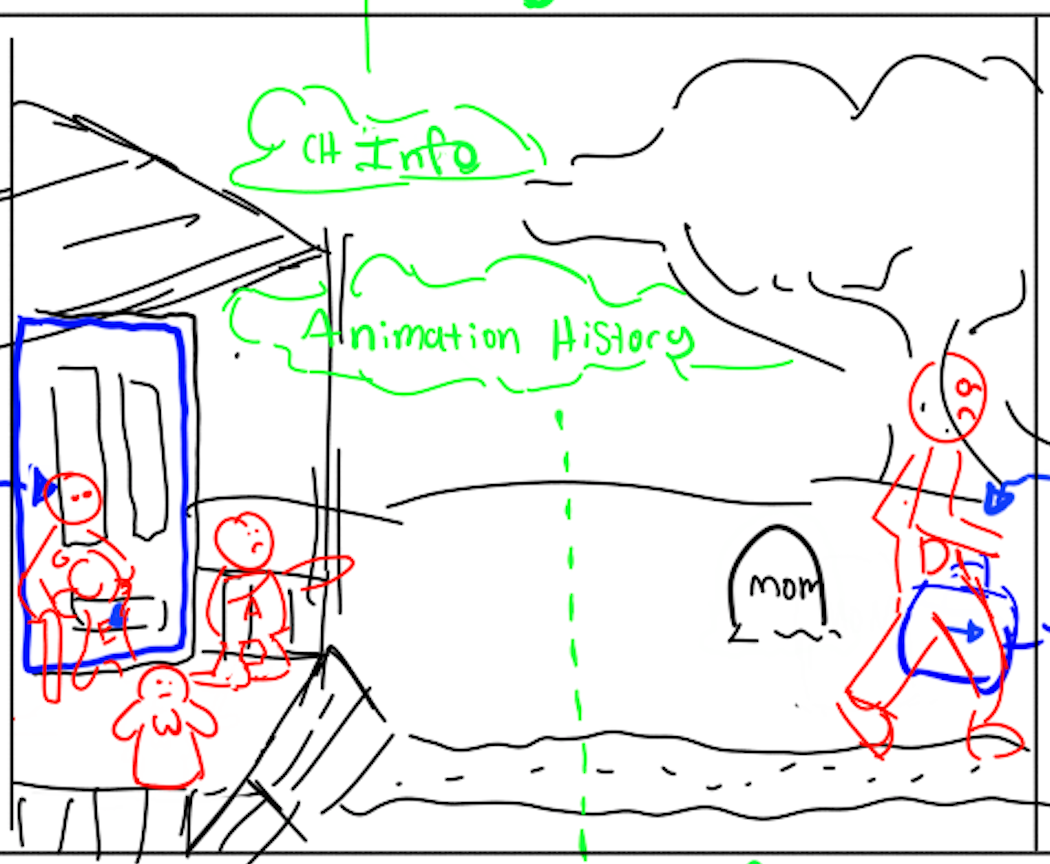 CH Info
Animation History
mom
G
E
A
W
D